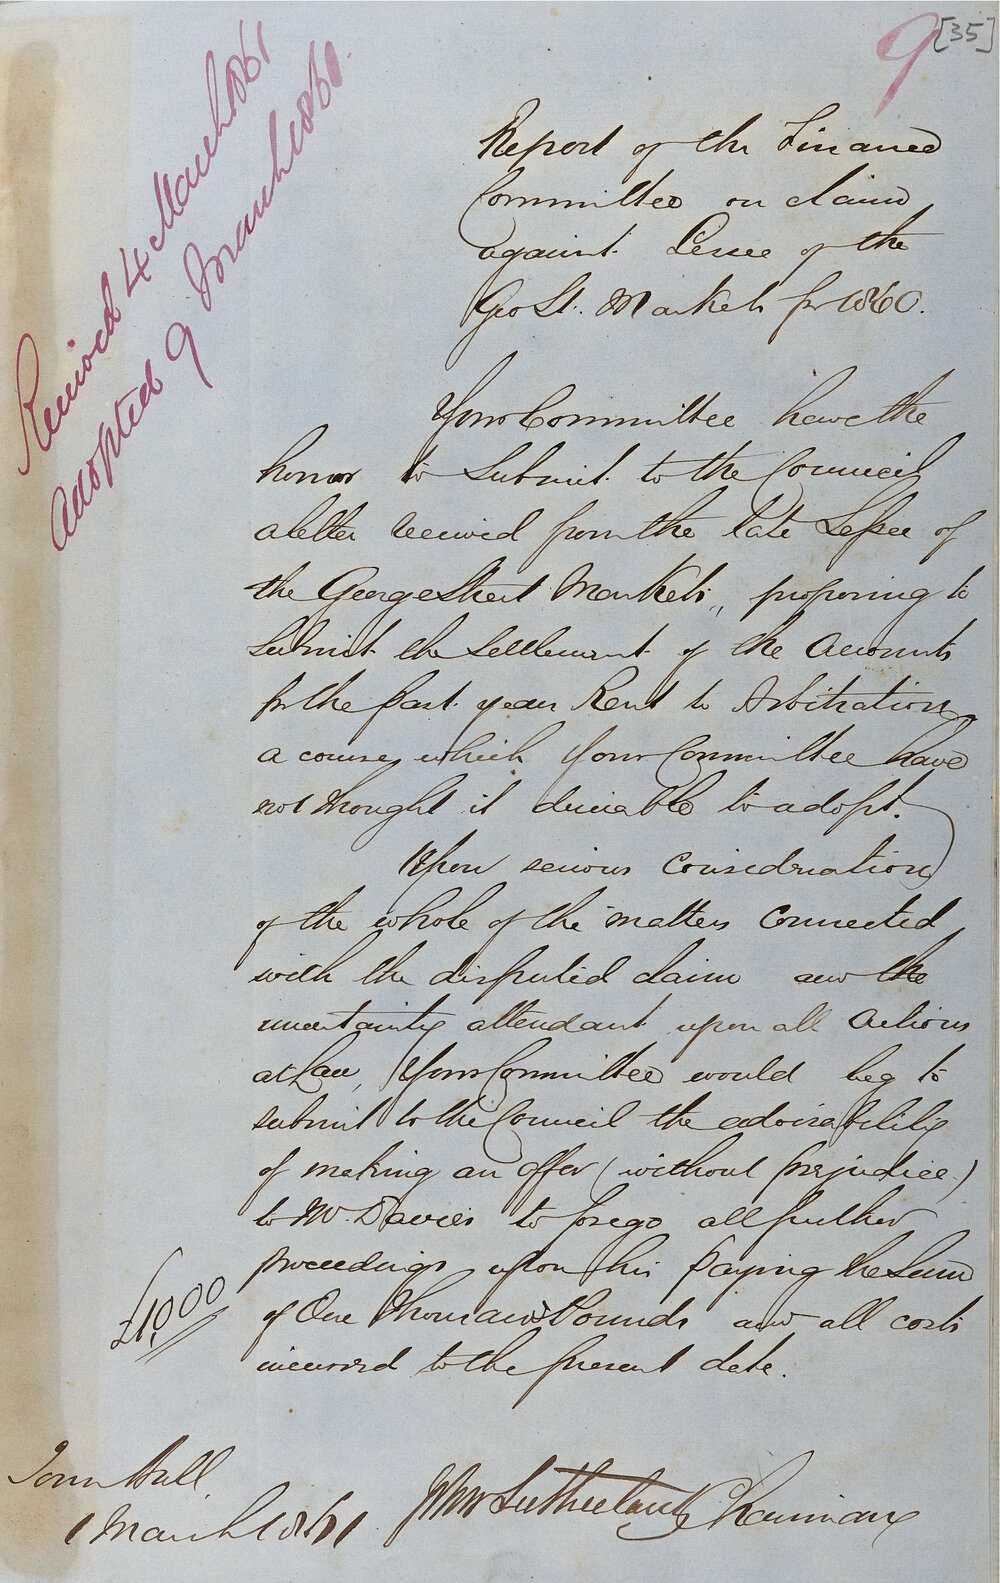 9 [35]
Received 4 March 1861
Adopted 9 March 1860.
Report of the Finance
Committee on claim
against Lessee of the
Geo St. Markets for 1860.
Your Committee have the
honor to submit to the Council
a letter received from the late Lessee of
the George Street Markets, proposing to
submit the settlement of the Accounts
for the past year Rent to Arbitration
a course which Your Committee have
not thought it desirable to adopt.
Upon serious Consideration
of the whole of the matters Connected
with the disputed claim and the
uncertainty attendant upon all Actions
at Law, Your Committee would beg to
submit to the Council the advisability
of making an offer (without prejudice)
to Mr. Davies to forego all further
proceedings upon his paying the Sum
of One Thousand Pounds and all costs
incurred to the present date.
£1000
Town Hall
1 March 1861
John Sutherland Chairman